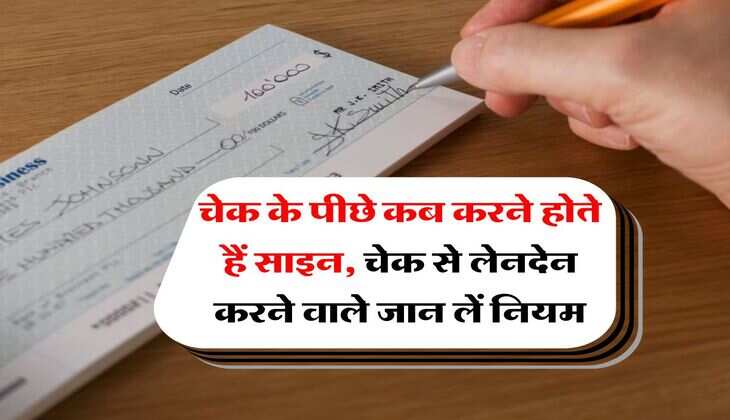 Date
100'000 $
MR J.K. SMITH
00/100 DOLLARS
siness
TES JOHNSON
HUNDRED THOUSAND
चेक के पीछे कब करने होते
हैं साइन, चेक से लेनदेन
करने वाले जान लें नियम